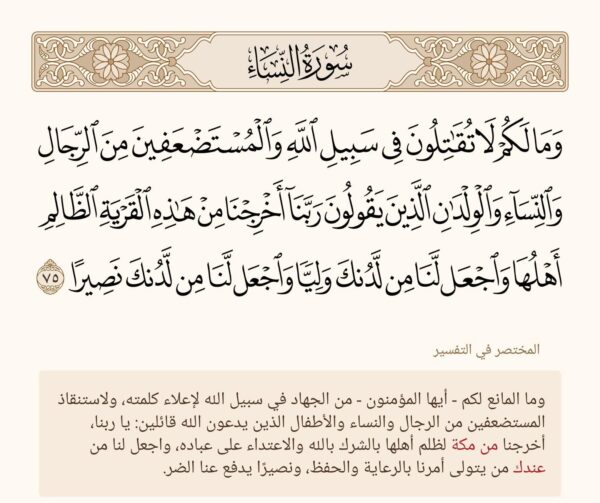 سُورَةُ النِّسَاءِ
وَمَا لَكُمْ لَا تُقَٰتِلُونَ فِي سَبِيلِ ٱللَّهِ وَٱلْمُسْتَضْعَفِينَ مِنَ ٱلرِّجَالِ
وَٱلنِّسَآءِ وَٱلْوِلْدَٰنِ ٱلَّذِينَ يَقُولُونَ رَبَّنَآ أَخْرِجْنَا مِنْ هَٰذِهِ ٱلْقَرْيَةِ ٱلظَّالِمِ
أَهْلُهَا وَٱجْعَل لَّنَا مِن لَّدُنكَ وَلِيًّا وَٱجْعَل لَّنَا مِن لَّدُنكَ نَصِيرًا ٧٥
المختصر في التفسير
وما المانع لكم - أيها المؤمنون - من الجهاد في سبيل الله لإعلاء كلمته، ولاستنقاذ
المستضعفين من الرجال والنساء والأطفال الذين يدعون الله قائلين: يا ربنا،
أخرجنا من مكة لظلم أهلها بالشرك بالله والاعتداء على عباده، واجعل لنا من
عندك من يتولى أمرنا بالرعاية والحفظ، ونصيرًا يدفع عنا الضر.